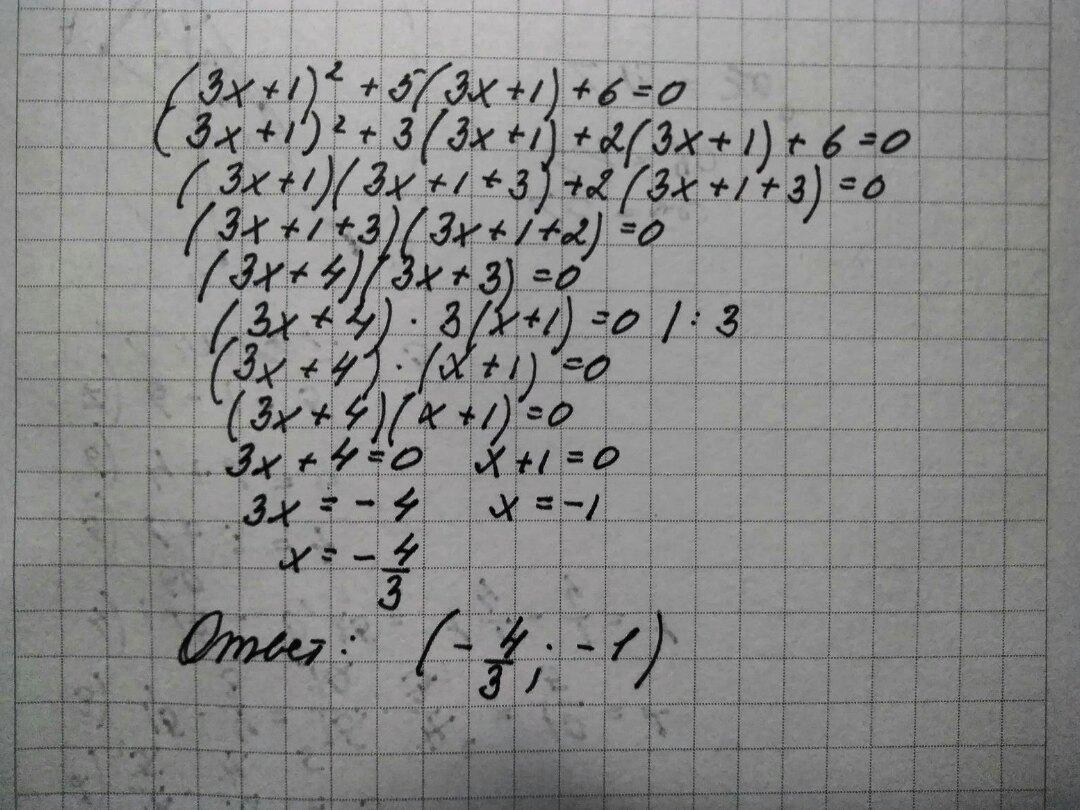 (3x+1)² + 5(3x+1) + 6 = 0
(3x+1)² + 3(3x+1) + 2(3x+1) + 6 = 0
(3x+1)(3x+1+3) + 2(3x+1+3) = 0
(3x+1+3)(3x+1+2) = 0
(3x+4)(3x+3) = 0
(3x+4) · 3(x+1) = 0 | : 3
(3x+4) · (x+1) = 0
(3x+4)(x+1) = 0
3x+4=0 x+1=0
3x = -4 x = -1
x = -4/3
Ответ: (-4/3; -1)